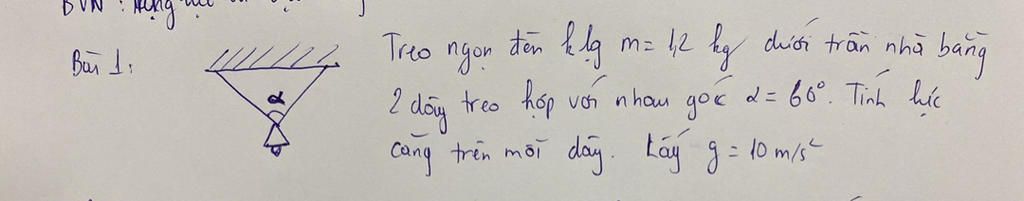 BVN :
Bài 1:
α
Treo ngọn đèn k lg m = 1,2 kg dưới trần nhà bằng
2 dây treo hợp với nhau góc α = 60°. Tính lực
căng trên mỗi dây. Lấy g = 10 m/s²